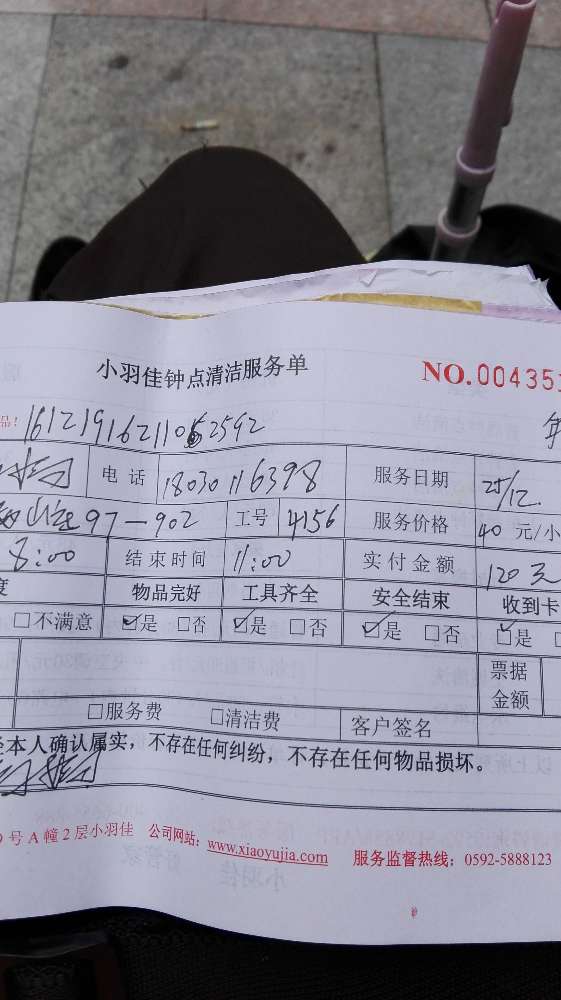 小羽佳钟点清洁服务单 NO.00435
品! 年
电话 18030116398 服务日期 25/12.
97-902 工号 4156 服务价格 40 元/小
8:00 结束时间 11:00 实付金额 120元
度 物品完好 工具齐全 安全结束 收到卡
□不满意 ☑是 □否 ☑是 □否 ☑是 □否 ☑是 □
票据
金额
□服务费 □清洁费 客户签名
本人确认属实，不存在任何纠纷，不存在任何物品损坏。
号A幢2层小羽佳 公司网站：www.xiaoyujia.com 服务监督热线：0592-5888123